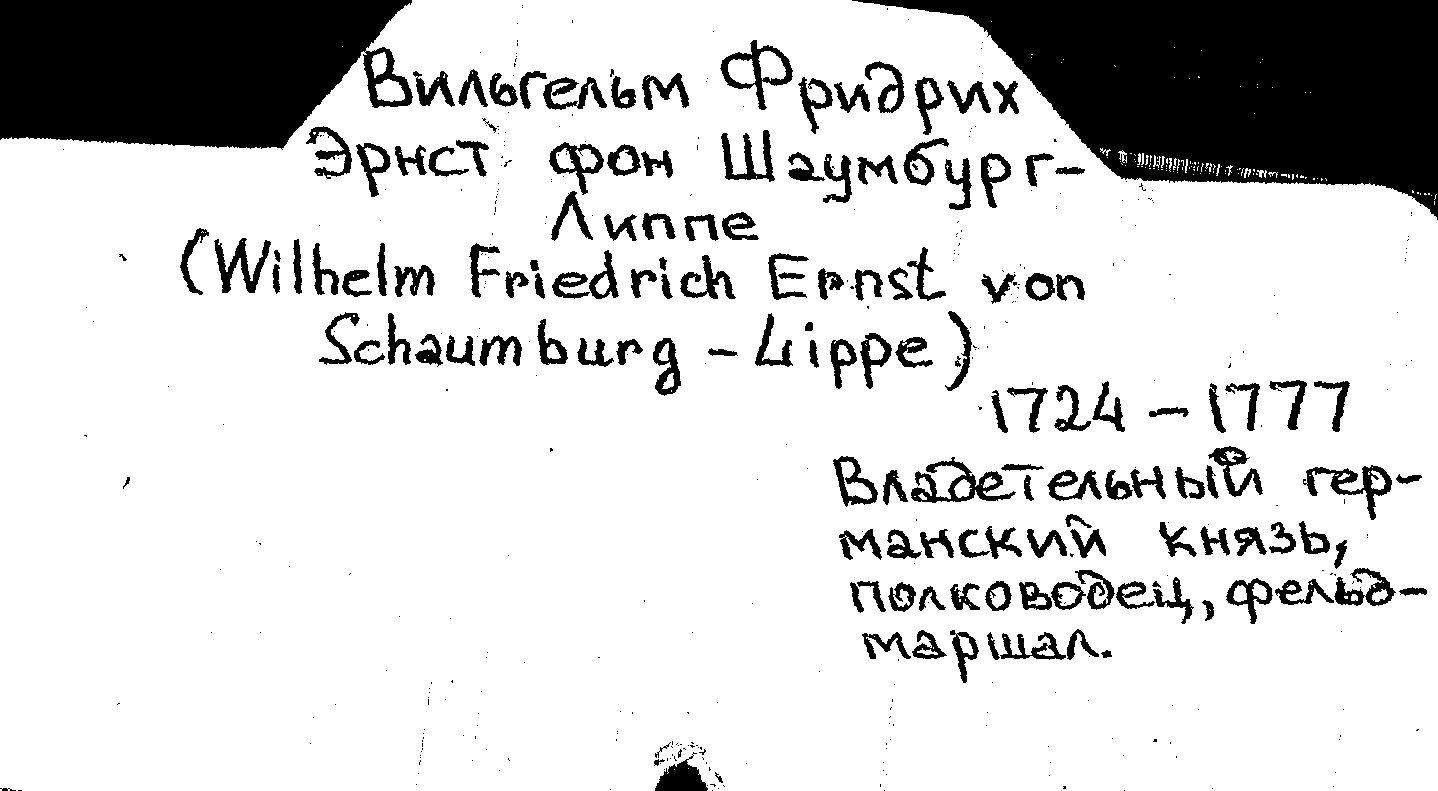 Вильгельм Фридрих
Эрнст фон Шаумбург-
Липпе
(Wilhelm Friedrich Ernst von
Schaumburg - Lippe)
1724 - 1777
Владетельный гер-
манский князь,
полководец, фельд-
маршал.